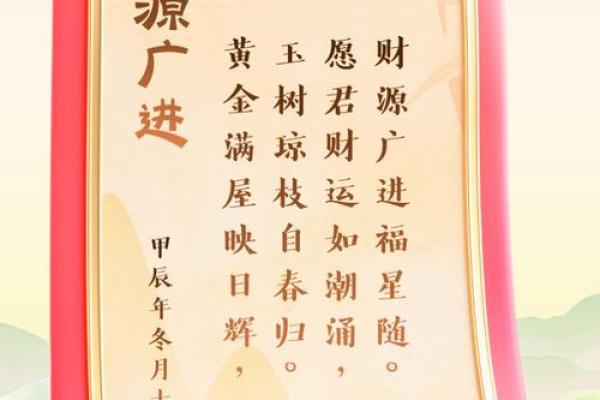 源广进
黄金满屋映日辉，
玉树琼枝自春归。
愿君财运如潮涌，
财源广进福星随。
甲辰年冬月